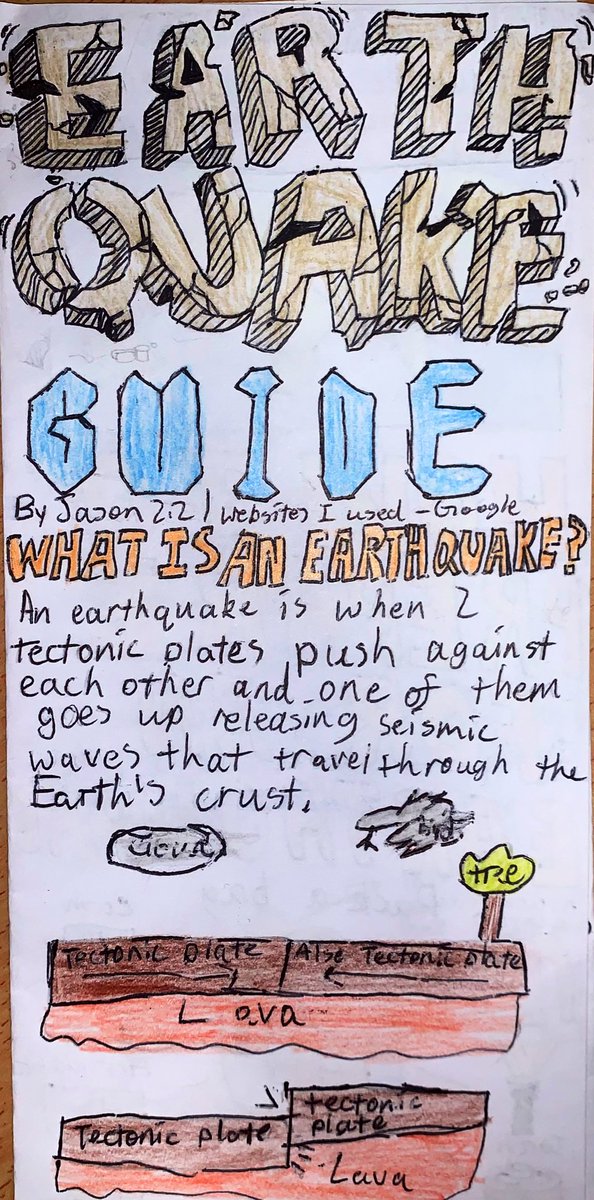 EARTH
QUAKE
GUIDE
By Jason 2.2 | Websites I used - Google
WHAT IS AN EARTHQUAKE?
An earthquake is when 2
tectonic plates push against
each other and one of them
goes up releasing seismic
waves that travel through the
Earth's crust.
Cloud
bird
tree
Tectonic plate
Also Tectonic plate
Lava
tectonic
plate
Tectonic plate
Lava